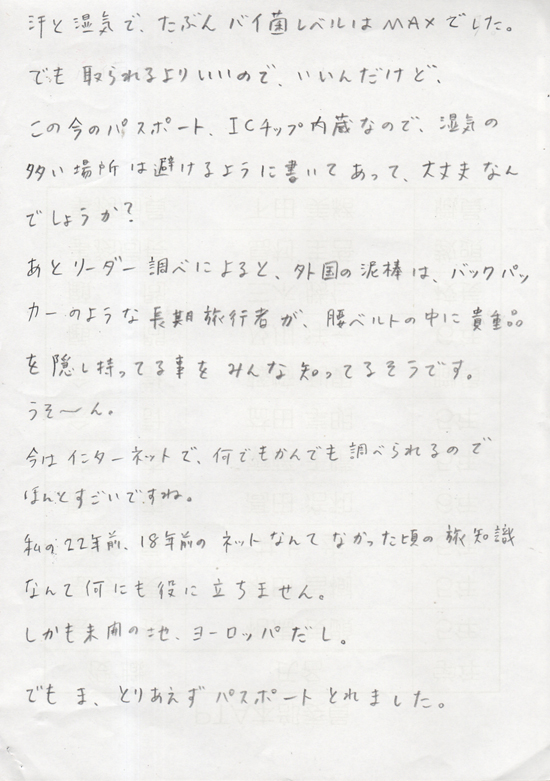 汗と湿気で、たぶんバイ菌レベルはMAXでした。
でも取られるよりいいので、いいんだけど、
この今のパスポート、ICチップ内蔵なので、湿気の
多い場所は避けるように書いてあって、大丈夫なん
でしょうか？
あとリーダー調べによると、外国の泥棒は、バックパッ
カーのような長期旅行者が、腰ベルトの中に貴重品
を隠し持ってる事をみんな知ってるそうです。
うそ〜ん。
今はインターネットで、何でもかんでも調べられるので
ほんとすごいですね。
私の22年前、18年前のネットなんてなかった頃の旅知識
なんて何にも役に立ちません。
しかも未開の地、ヨーロッパだし。
でもま、とりあえずパスポートとれました。